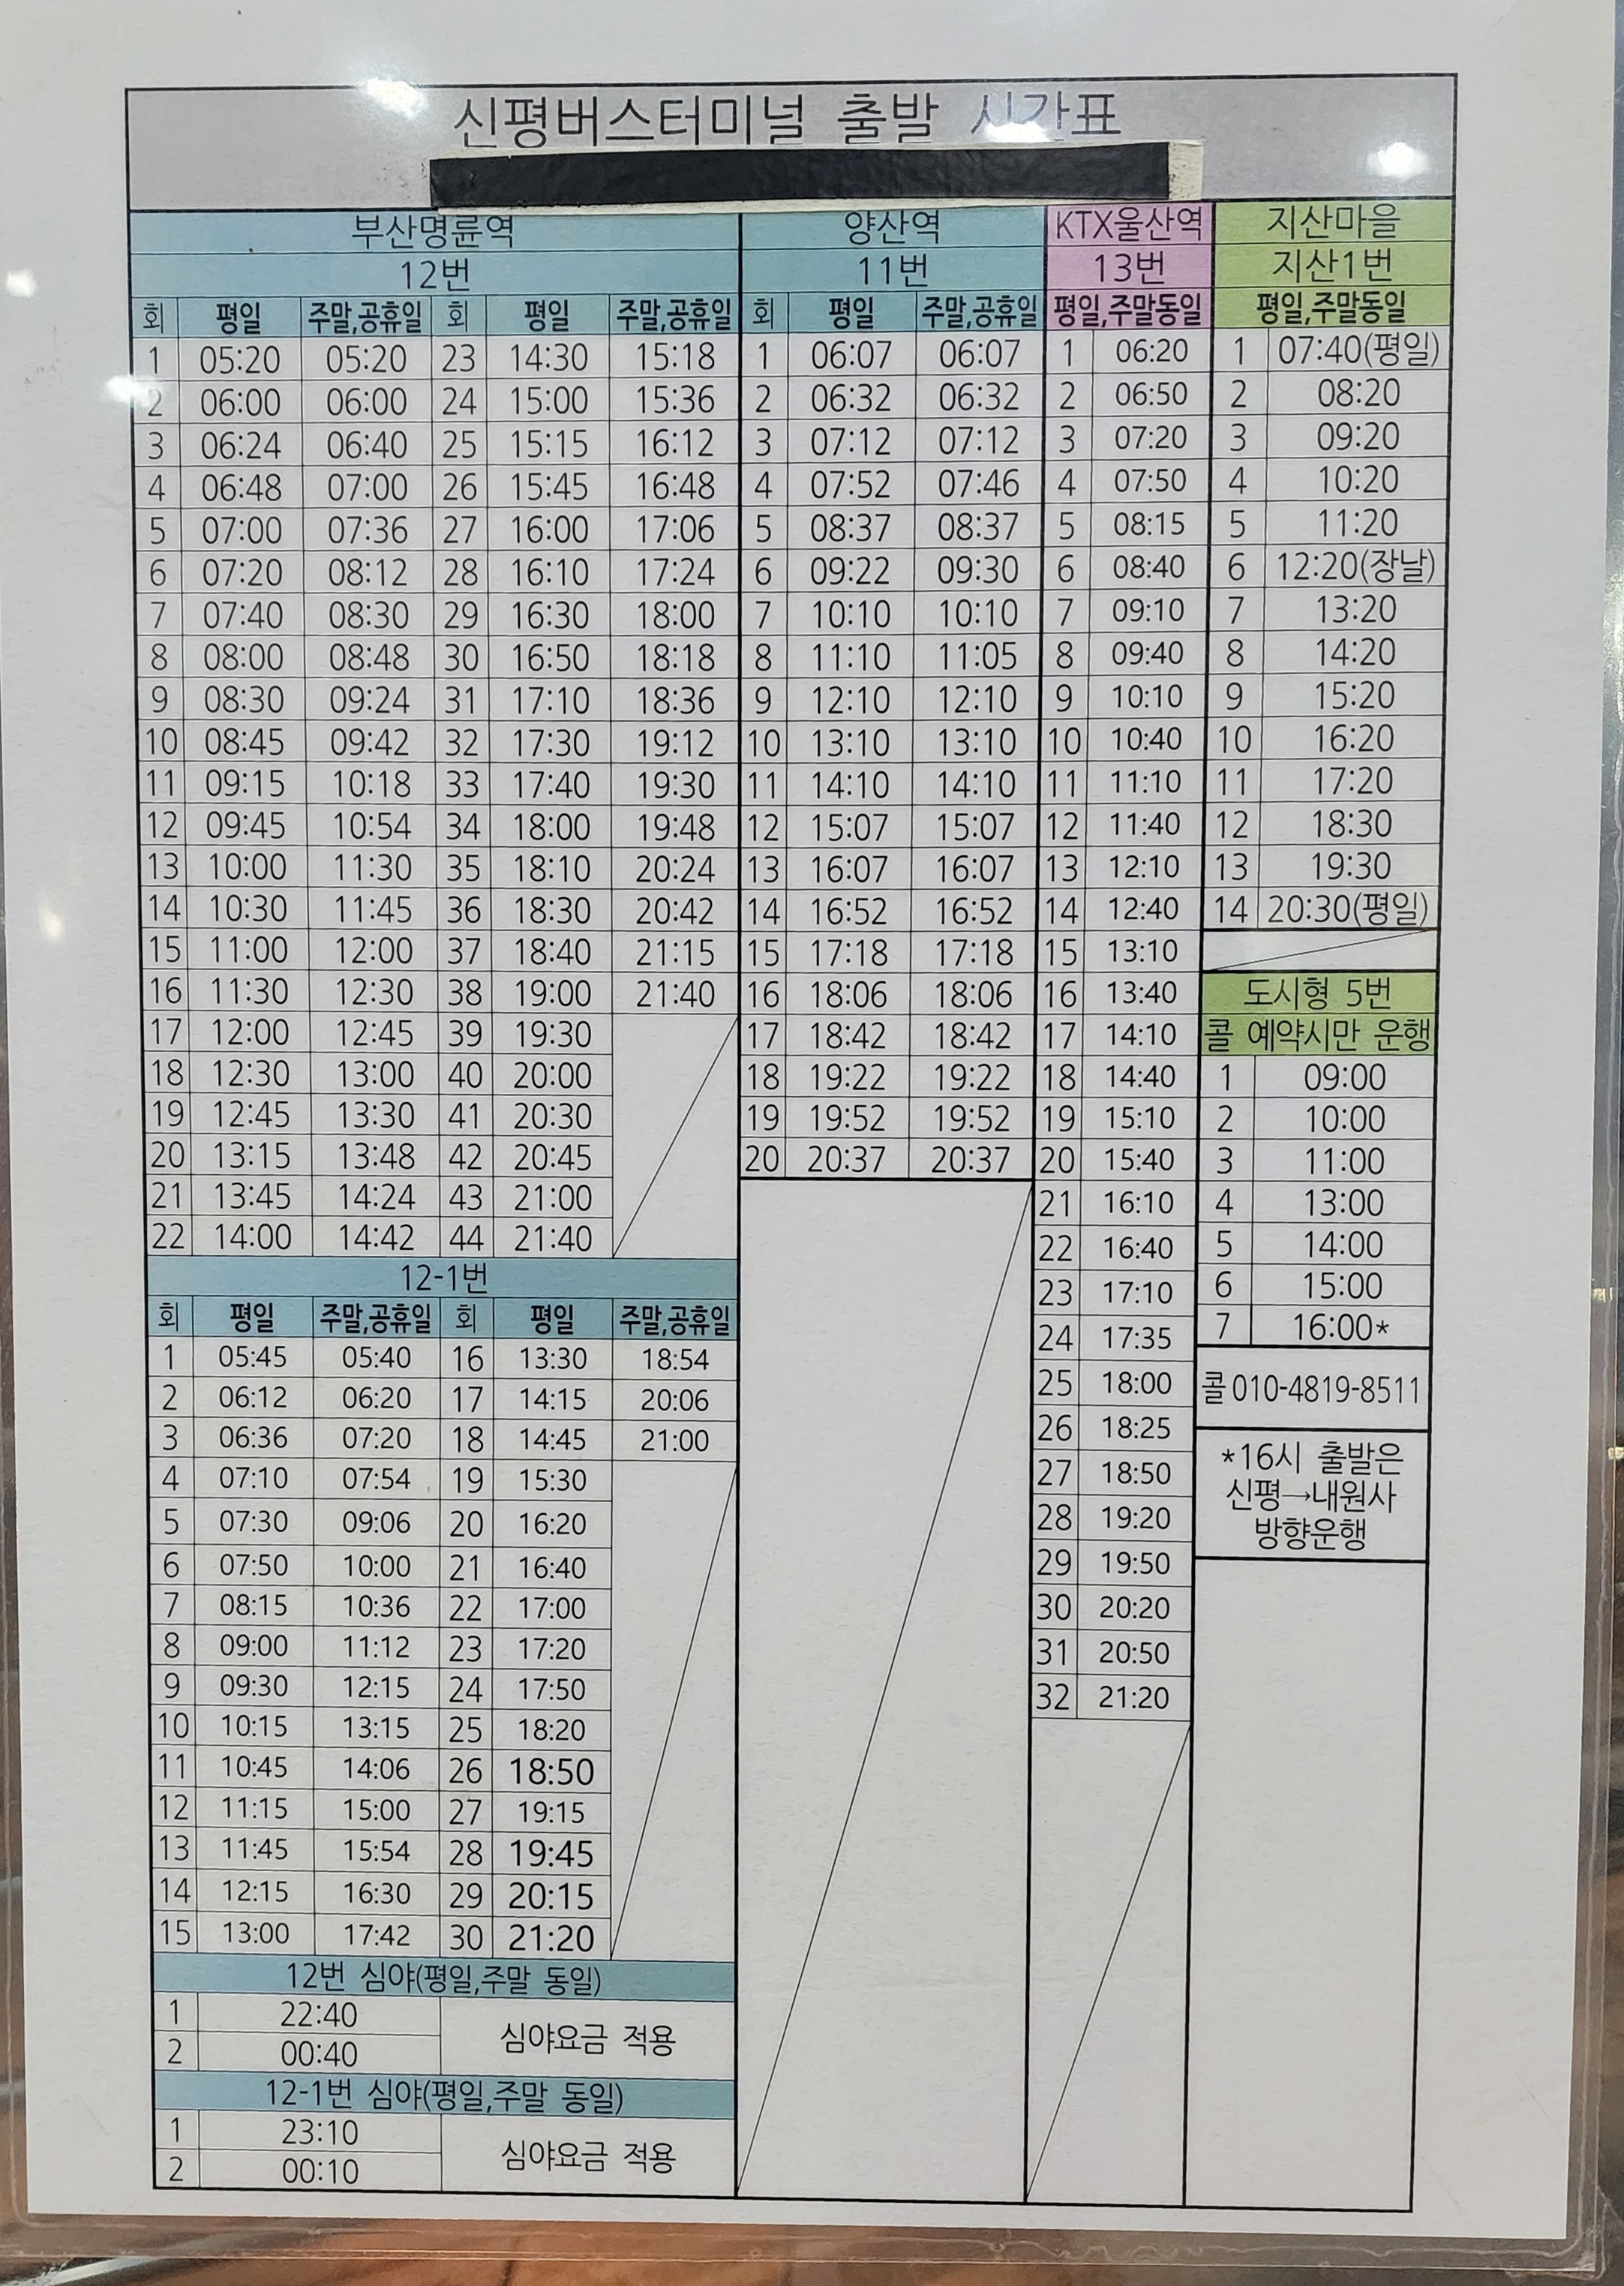 신평버스터미널 출발 시간표
부산명륜역 양산역 KTX울산역 지산마을
12번 11번 13번 지산1번
회 평일 주말,공휴일 회 평일 주말,공휴일 회 평일 주말,공휴일 평일,주말동일 평일,주말동일
1 05:20 05:20 23 14:30 15:18 1 06:07 06:07 1 06:20 1 07:40(평일)
2 06:00 06:00 24 15:00 15:36 2 06:32 06:32 2 06:50 2 08:20
3 06:24 06:40 25 15:15 16:12 3 07:12 07:12 3 07:20 3 09:20
4 06:48 07:00 26 15:45 16:48 4 07:52 07:46 4 07:50 4 10:20
5 07:00 07:36 27 16:00 17:06 5 08:37 08:37 5 08:15 5 11:20
6 07:20 08:12 28 16:10 17:24 6 09:22 09:30 6 08:40 6 12:20(장날)
7 07:40 08:30 29 16:30 18:00 7 10:10 10:10 7 09:10 7 13:20
8 08:00 08:48 30 16:50 18:18 8 11:10 11:05 8 09:40 8 14:20
9 08:30 09:24 31 17:10 18:36 9 12:10 12:10 9 10:10 9 15:20
10 08:45 09:42 32 17:30 19:12 10 13:10 13:10 10 10:40 10 16:20
11 09:15 10:18 33 17:40 19:30 11 14:10 14:10 11 11:10 11 17:20
12 09:45 10:54 34 18:00 19:48 12 15:07 15:07 12 11:40 12 18:30
13 10:00 11:30 35 18:10 20:24 13 16:07 16:07 13 12:10 13 19:30
14 10:30 11:45 36 18:30 20:42 14 16:52 16:52 14 12:40 14 20:30(평일)
15 11:00 12:00 37 18:40 21:15 15 17:18 17:18 15 13:10
16 11:30 12:30 38 19:00 21:40 16 18:06 18:06 16 13:40 도시형 5번
17 12:00 12:45 39 19:30 17 18:42 18:42 17 14:10 콜 예약시만 운행
18 12:30 13:00 40 20:00 18 19:22 19:22 18 14:40 1 09:00
19 12:45 13:30 41 20:30 19 19:52 19:52 19 15:10 2 10:00
20 13:15 13:48 42 20:45 20 20:37 20:37 20 15:40 3 11:00
21 13:45 14:24 43 21:00 21 16:10 4 13:00
22 14:00 14:42 44 21:40 22 16:40 5 14:00
12-1번 23 17:10 6 15:00
회 평일 주말,공휴일 회 평일 주말,공휴일 24 17:35 7 16:00*
1 05:45 05:40 16 13:30 18:54 25 18:00 콜010-4819-8511
2 06:12 06:20 17 14:15 20:06 26 18:25
3 06:36 07:20 18 14:45 21:00 27 18:50 *16시 출발은
4 07:10 07:54 19 15:30 28 19:20 신평→내원사
5 07:30 09:06 20 16:20 29 19:50 방향운행
6 07:50 10:00 21 16:40 30 20:20
7 08:15 10:36 22 17:00 31 20:50
8 09:00 11:12 23 17:20 32 21:20
9 09:30 12:15 24 17:50
10 10:15 13:15 25 18:20
11 10:45 14:06 26 18:50
12 11:15 15:00 27 19:15
13 11:45 15:54 28 19:45
14 12:15 16:30 29 20:15
15 13:00 17:42 30 21:20
12번 심야(평일,주말 동일)
1 22:40 심야요금 적용
2 00:40
12-1번 심야(평일,주말 동일)
1 23:10 심야요금 적용
2 00:10